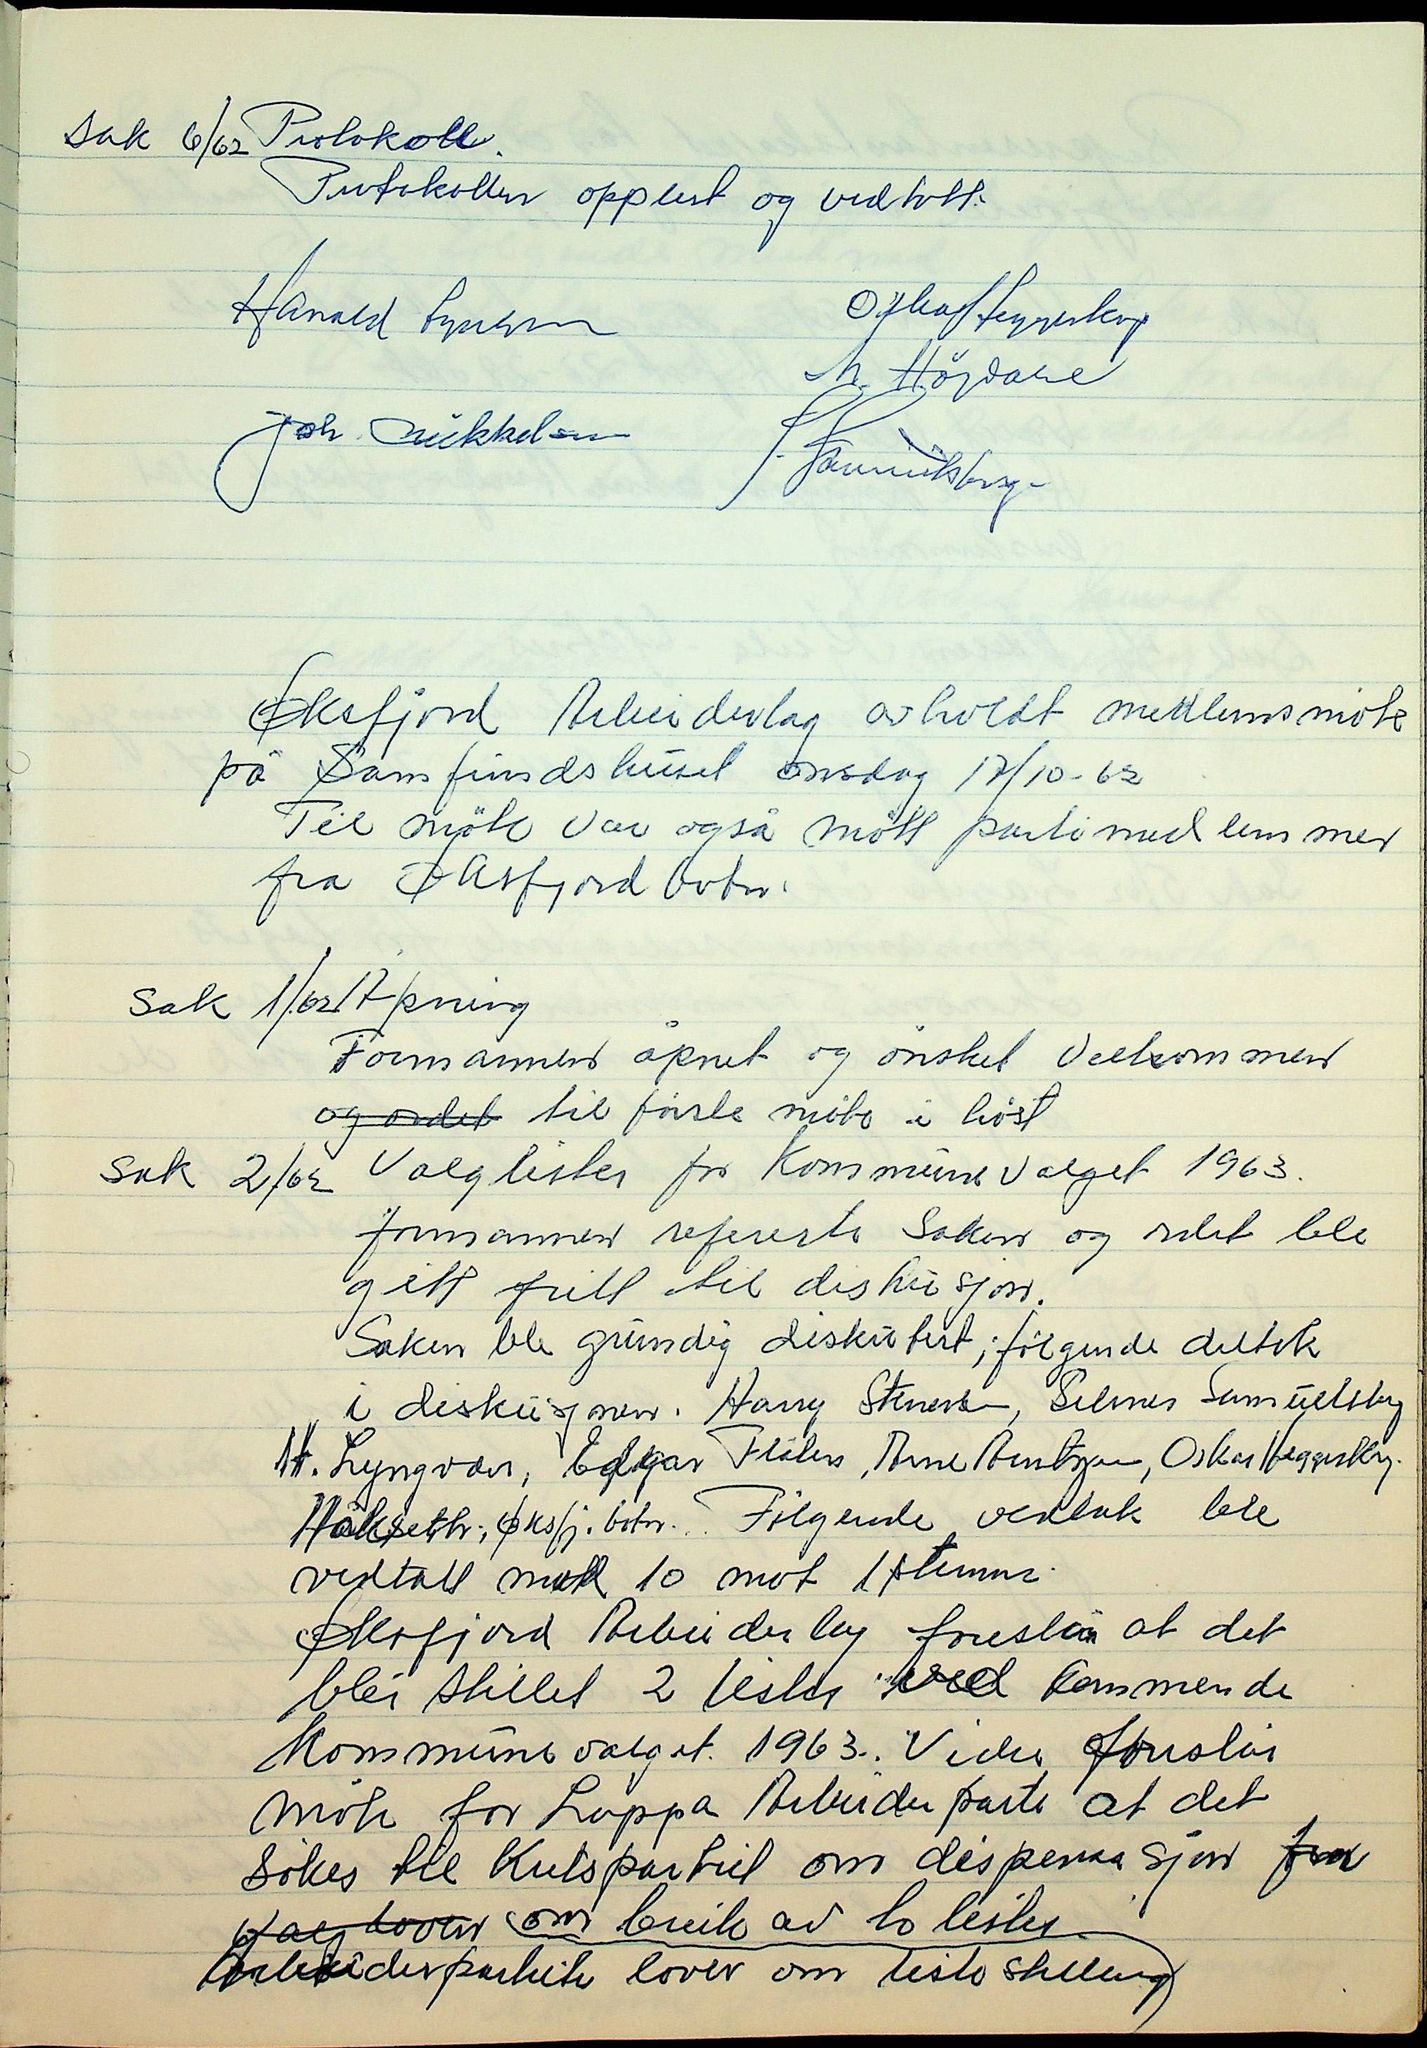 Sak 6/62 Protokoll.
Protokollen opplest og vedtatt.
Harald Lyngvær
Oskar Heggeskog
M. Høydahl
Joh. Mikkelsen
Øksfjord Arbeiderlag avholdt mellemsmöte
på Samfundshuset onsdag 17/10-62
Til möte var også mött partimedlemmer
fra Øksfjordbotn.
Sak 1/62 Åpning
Formannen åpnet og önsket Velkommen
og ordet til förste möte i höst
Sak 2/62 Valglister for Kommunevalget 1963.
Formannen refererte Saken og ordet ble
gitt fritt til diskusjon.
Saken ble grundig diskutert, fölgende deltok
i diskusjonen. Harry Stenersen, Selmer Samuelsberg
H. Lyngvær, Edgar Flåten, Arne Arntzen, Oskar Heggeskog.
Öksfj.botn. Fölgende vedtak ble
vedtatt med 10 mot 1 stemme.
Øksfjord Arbeiderlag foreslår at det
blir stillet 2 lister ved kommende
Kommunevalget 1963. Videre foreslår
möte for Loppa Arbeiderparti at det
sökes til Kretspartiet om dispensasjon fra
valgloven om bruk av to lister.
Arbeiderpartiets lover om listestilling